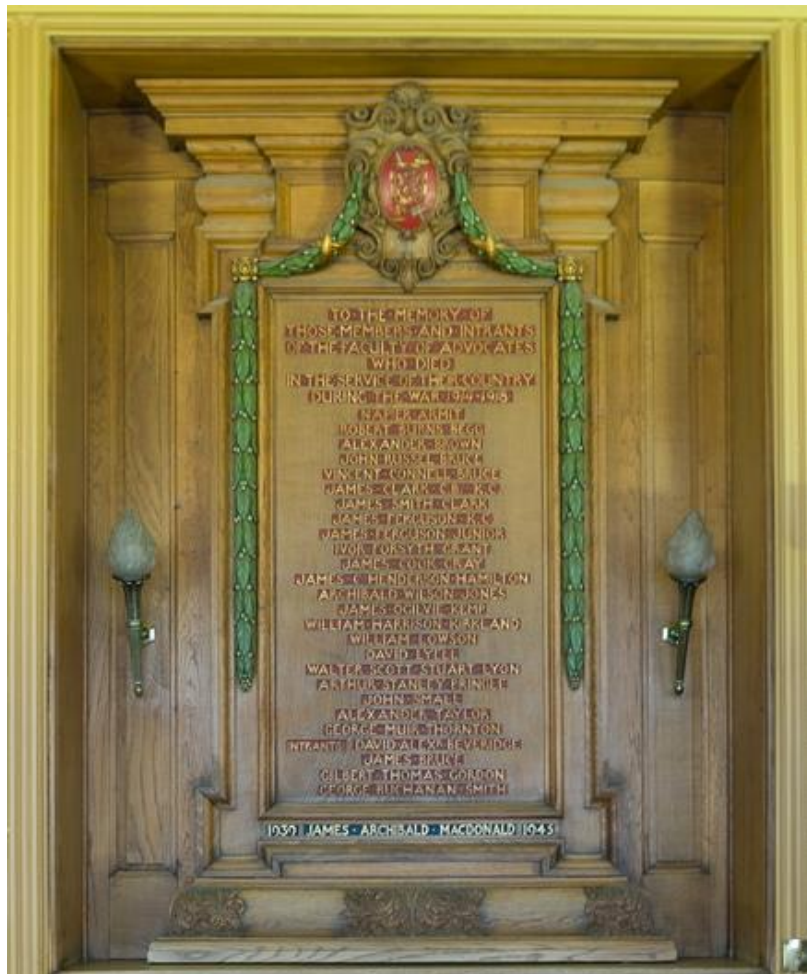 TO·THE·MEMORY·OF
THOSE·MEMBERS·AND·INTRANTS
OF·THE·FACULTY·OF·ADVOCATES
WHO·DIED
IN·THE·SERVICE·OF·THEIR·COUNTRY
DURING·THE·WAR·1914-1918
NAPIER·ARMIT
ROBERT·BURNS·BEGG
ALEXANDER·BROWN
JOHN·RUSSEL·BRUCE
VINCENT·CONNELL·BRUCE
JAMES·CLARK·C.B.·K.C.
JAMES·SMITH·CLARK
JAMES·FERGUSON·K.C.
JAMES·FERGUSON·JUNIOR
IVOR·FORSYTH·GRANT
JAMES·COOK·GRAY
JAMES·C·HENDERSON·HAMILTON
ARCHIBALD·WILSON·JONES
JAMES·OGILVIE·KEMP
WILLIAM·HARRISON·KIRKLAND
WILLIAM·LOWSON
DAVID·LYELL
WALTER·SCOTT·STUART·LYON
ARTHUR·STANLEY·PRINGLE
JOHN·SMALL
ALEXANDER·TAYLOR
GEORGE·MUIR·THORNTON
INTRANTS DAVID·ALEXR·BEVERIDGE
JAMES·BRUCE
GILBERT·THOMAS·GORDON
GEORGE·BUCHANAN·SMITH
1939 JAMES·ARCHIBALD·MACDONALD 1945